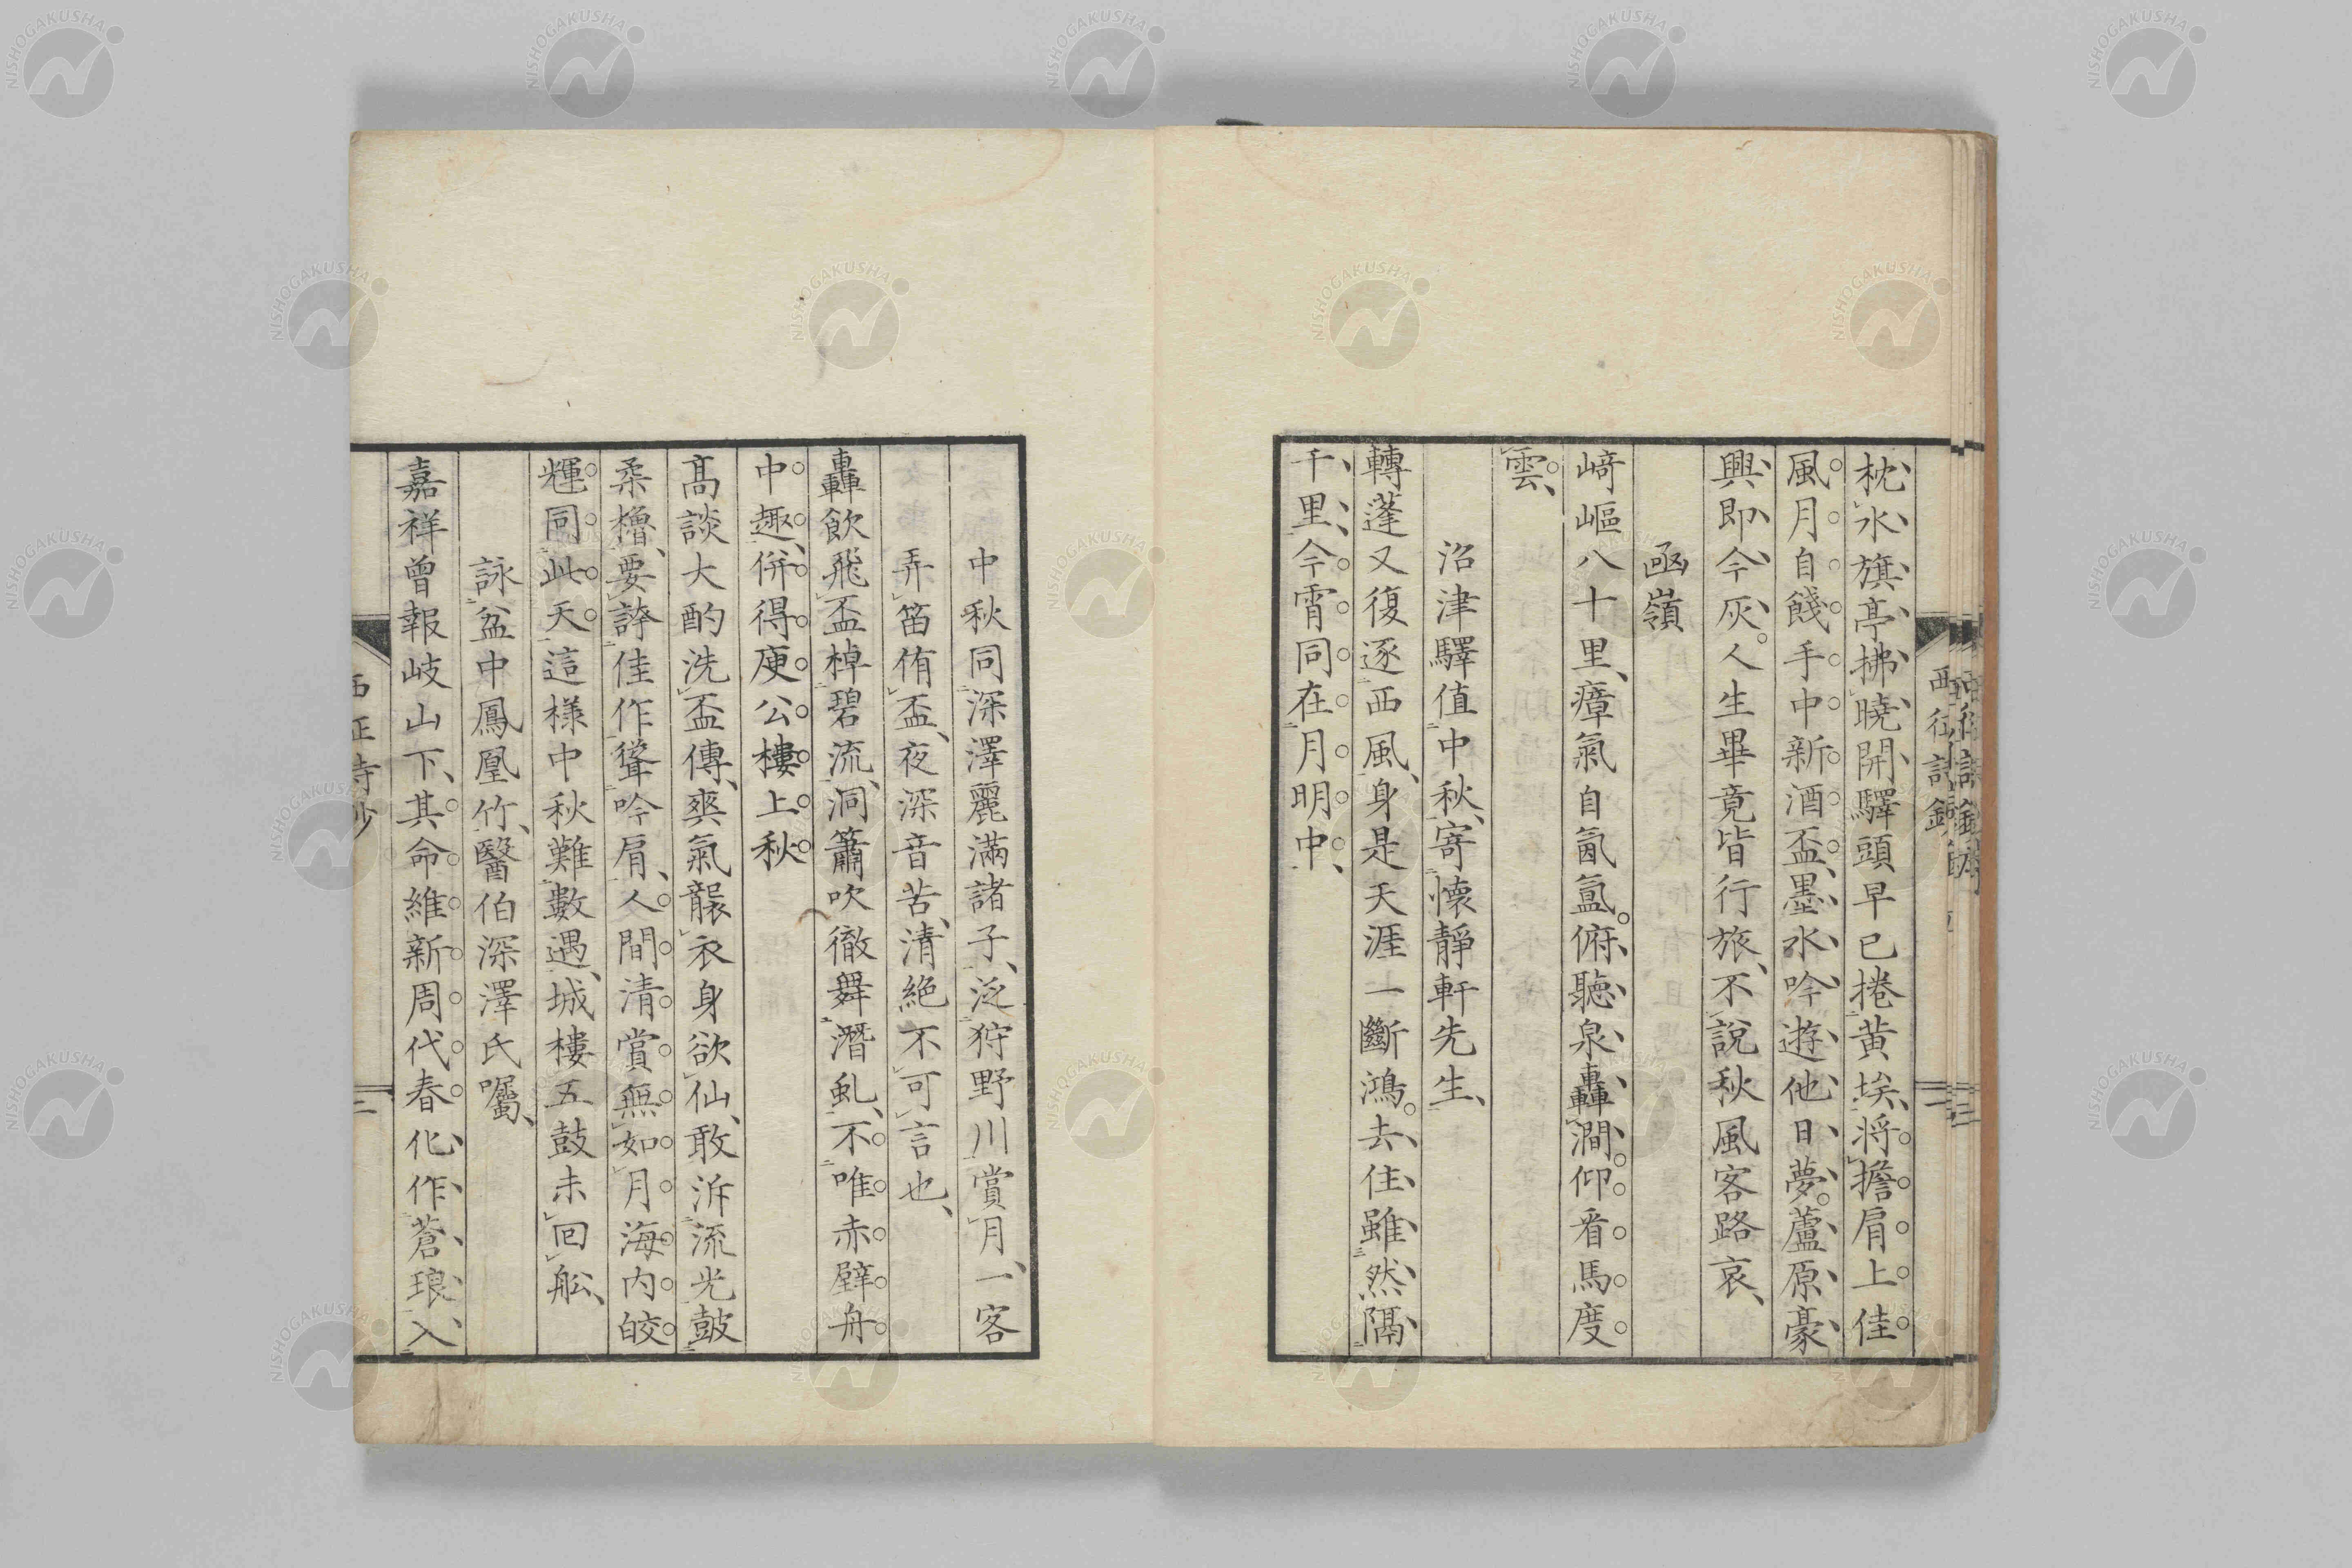 枕、水旗亭拂曉開、驛頭早已捲黃埃、將擔肩上佳
風月自餞手中新酒盃、墨水吟遊他日夢。蘆原豪
興即今灰。人生畢竟皆行旅、不說秋風客路哀、
凾嶺
﨑嶇八十里、瘴氣自氤氳。俯聽泉轟澗。仰看馬度
雲、
沼津驛値中秋、寄懷靜軒先生、
轉蓬又復逐西風、身是天涯一斷鴻。去住雖然隔
千里、今宵同在月明中、
中秋同深澤麗滿諸子、泛狩野川賞月、一客
弄笛侑盃、夜深音苦、清絕不可言也、
轟飲飛盃棹碧流、洞簫吹徹舞潛虬、不唯赤壁舟
中趣、併得庾公樓上秋
高談大酌洗盃傳、爽氣襲衣身欲仙、敢泝流光鼓
柔櫓、要誇佳作聳吟肩、人間清賞無如月海內皎
輝同此天這樣中秋難數遇、城樓五鼓未回舩、
詠盆中鳳凰竹、醫伯深澤氏囑、
嘉祥曾報岐山下、其命維新周代春化作蒼琅入